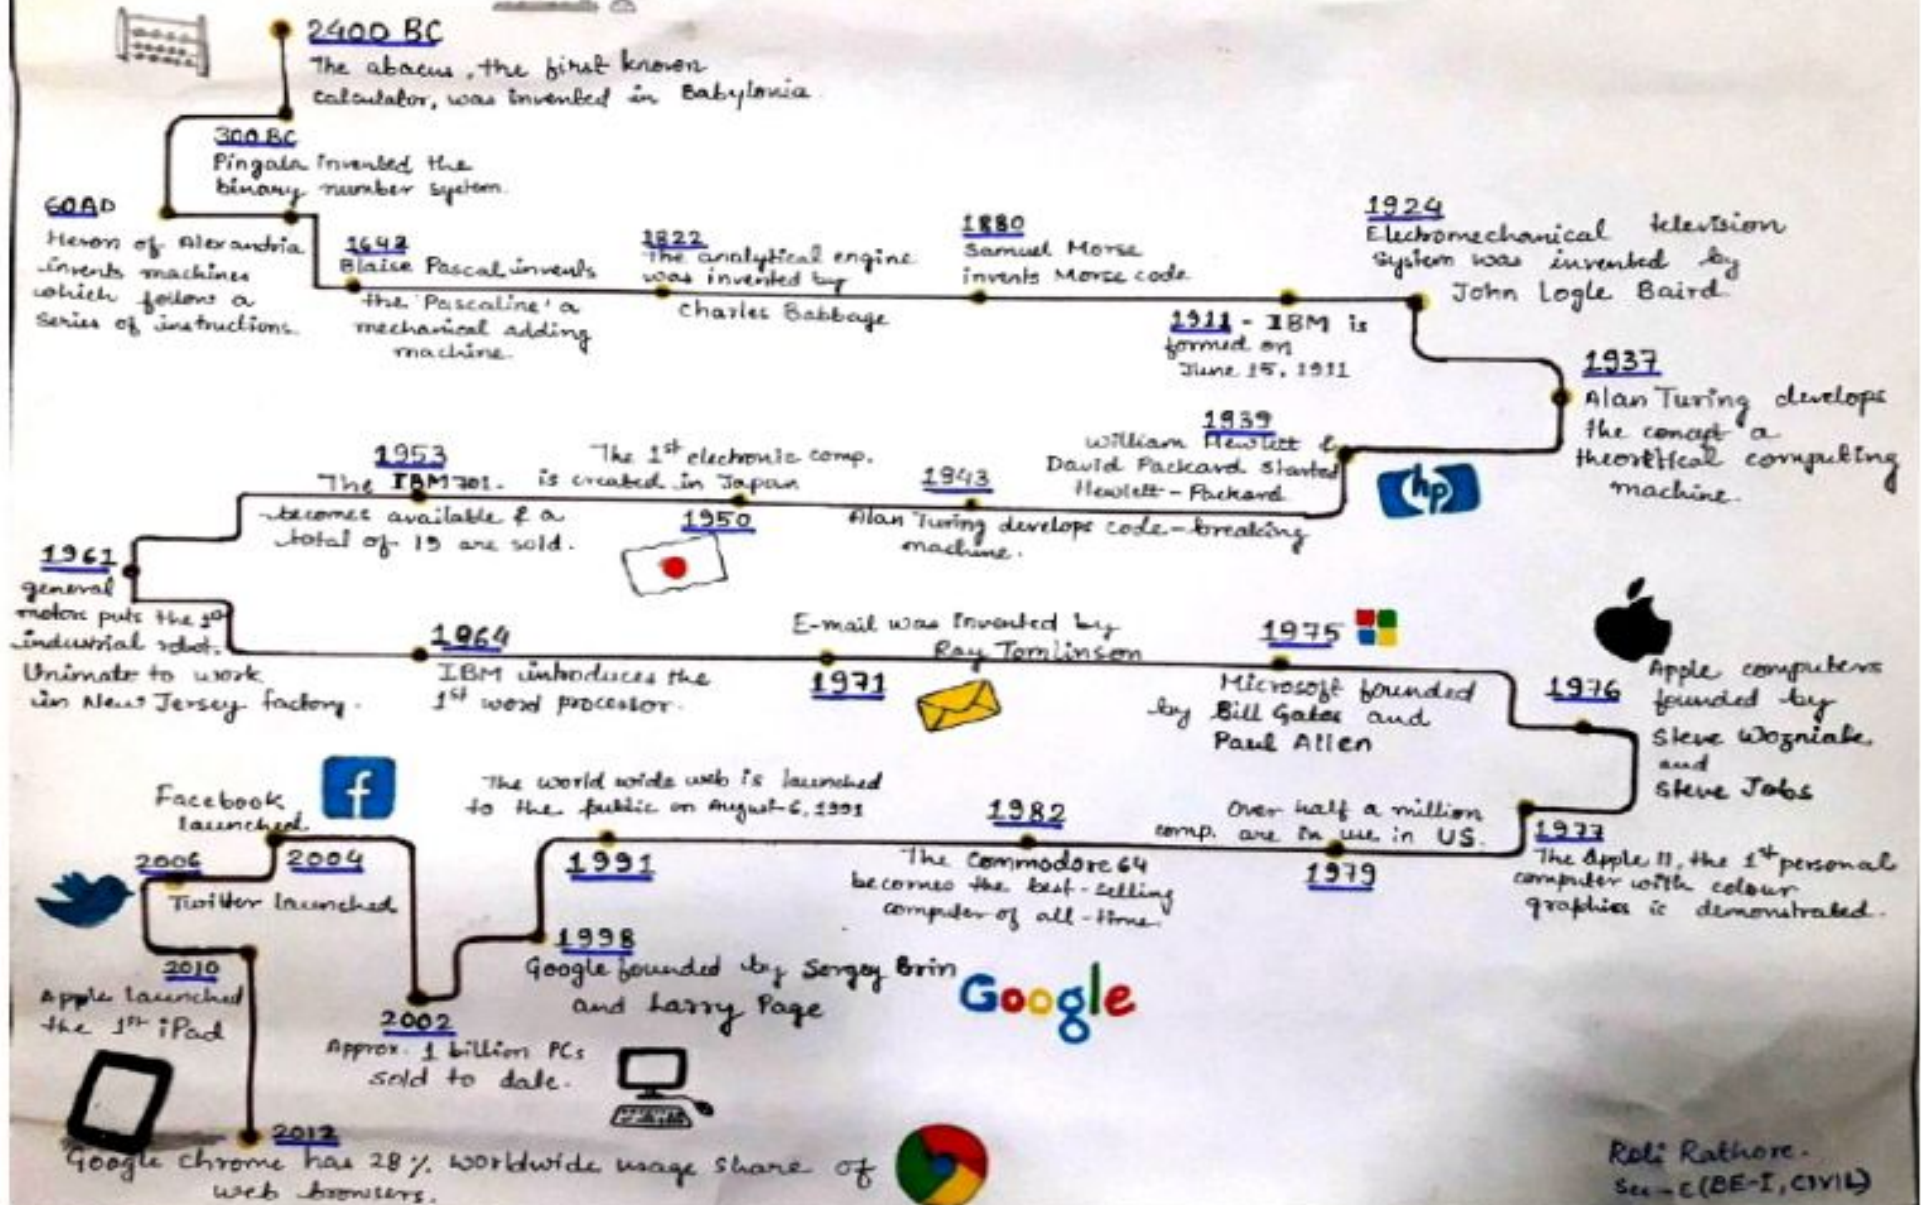 2400 BC
The abacus, the first known
calculator, was invented in Babylonia.
300 BC
Pingala invented the
binary number system.
60AD
Heron of Alexandria
invents machines
which follow a
series of instructions.
1642
Blaise Pascal invents
the 'Pascaline' a
mechanical adding
machine.
1822
The analytical engine
was invented by
Charles Babbage
1880
Samuel Morse
invents Morse code
1911 - IBM is
formed on
June 15, 1911
1924
Electromechanical television
system was invented by
John Logie Baird
1937
Alan Turing develops
the concept a
theoretical computing
machine.
1939
William Hewlett &
David Packard started
Hewlett-Packard
hp
1943
Alan Turing develops code-breaking
machine.
The 1st electronic comp.
is created in Japan
1950
1953
The IBM 701.
becomes available & a
total of 19 are sold.
1961
general
motors puts the 1st
industrial robot.
Unimate to work
in New Jersey factory.
1964
IBM introduces the
1st word processor.
E-mail was invented by
Ray Tomlinson
1971
1975
Microsoft founded
by Bill Gates and
Paul Allen
1976
Apple computers
founded by
Steve Wozniak
and
Steve Jobs
1977
The Apple II, the 1st personal
computer with colour
graphics is demonstrated.
Over half a million
comp. are in use in US.
1979
1982
The Commodore 64
becomes the best-selling
computer of all-time.
The world wide web is launched
to the public on August-6, 1991
1991
1998
Google founded by Sergey Brin
and Larry Page
Google
2002
Approx. 1 billion PCs
sold to date.
Facebook
launched
f
2004
2006
Twitter launched
2010
Apple launched
the 1st iPad
2012
Google chrome has 28% worldwide usage share of
web browsers.
Roli Rathore.
Sec-C (BE-I, CIVIL)